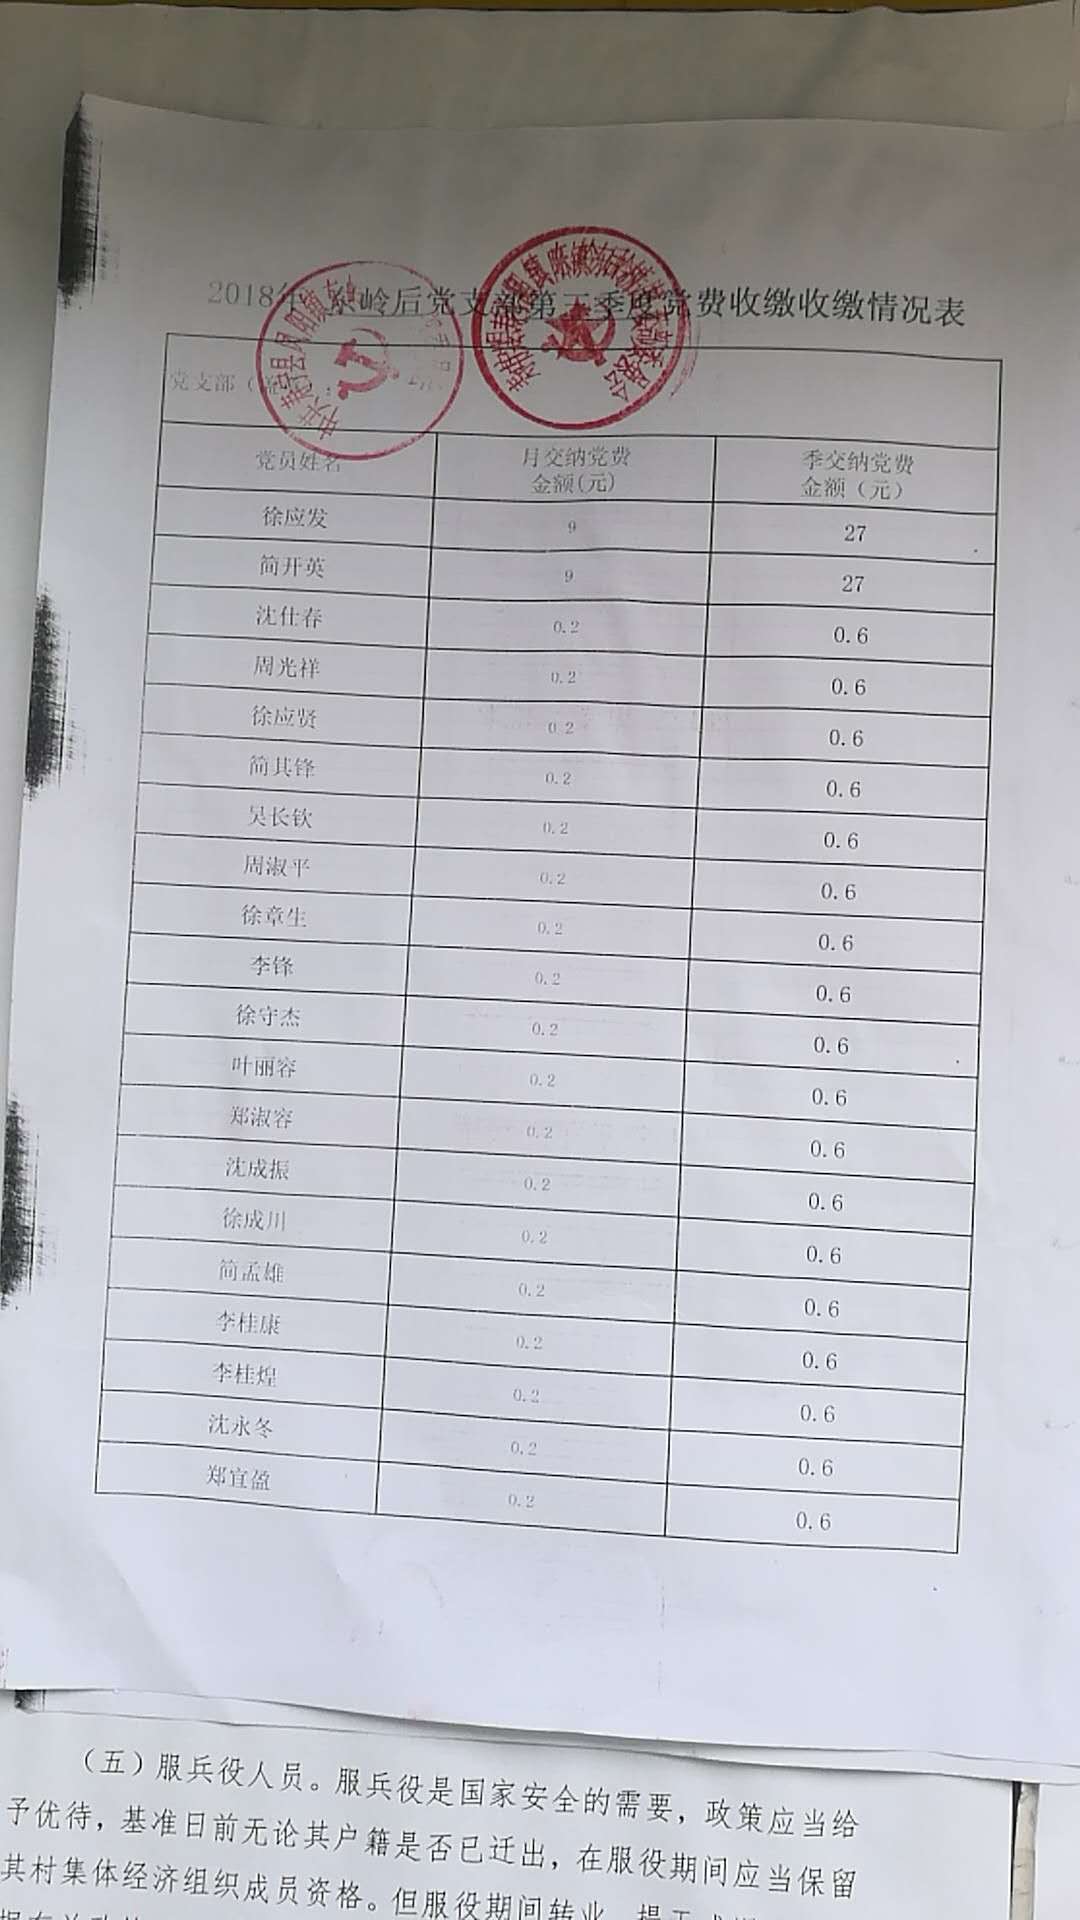 2018年 东岭后党支部第三季度党费收缴收缴情况表
党支部（盖
党员姓名 月交纳党费金额(元) 季交纳党费金额（元）
徐应发 9 27
简开英 9 27
沈仕春 0.2 0.6
周光祥 0.2 0.6
徐应贤 0.2 0.6
简其锋 0.2 0.6
吴长钦 0.2 0.6
周淑平 0.2 0.6
徐章生 0.2 0.6
李锋 0.2 0.6
徐守杰 0.2 0.6
叶丽容 0.2 0.6
郑淑容 0.2 0.6
沈成振 0.2 0.6
徐成川 0.2 0.6
简孟雄 0.2 0.6
李桂康 0.2 0.6
李桂煌 0.2 0.6
沈永冬 0.2 0.6
郑宜盈 0.2 0.6
（五）服兵役人员。服兵役是国家安全的需要，政策应当给
予优待，基准日前无论其户籍是否已迁出，在服役期间应当保留
其村集体经济组织成员资格。但服役期间转业、提干